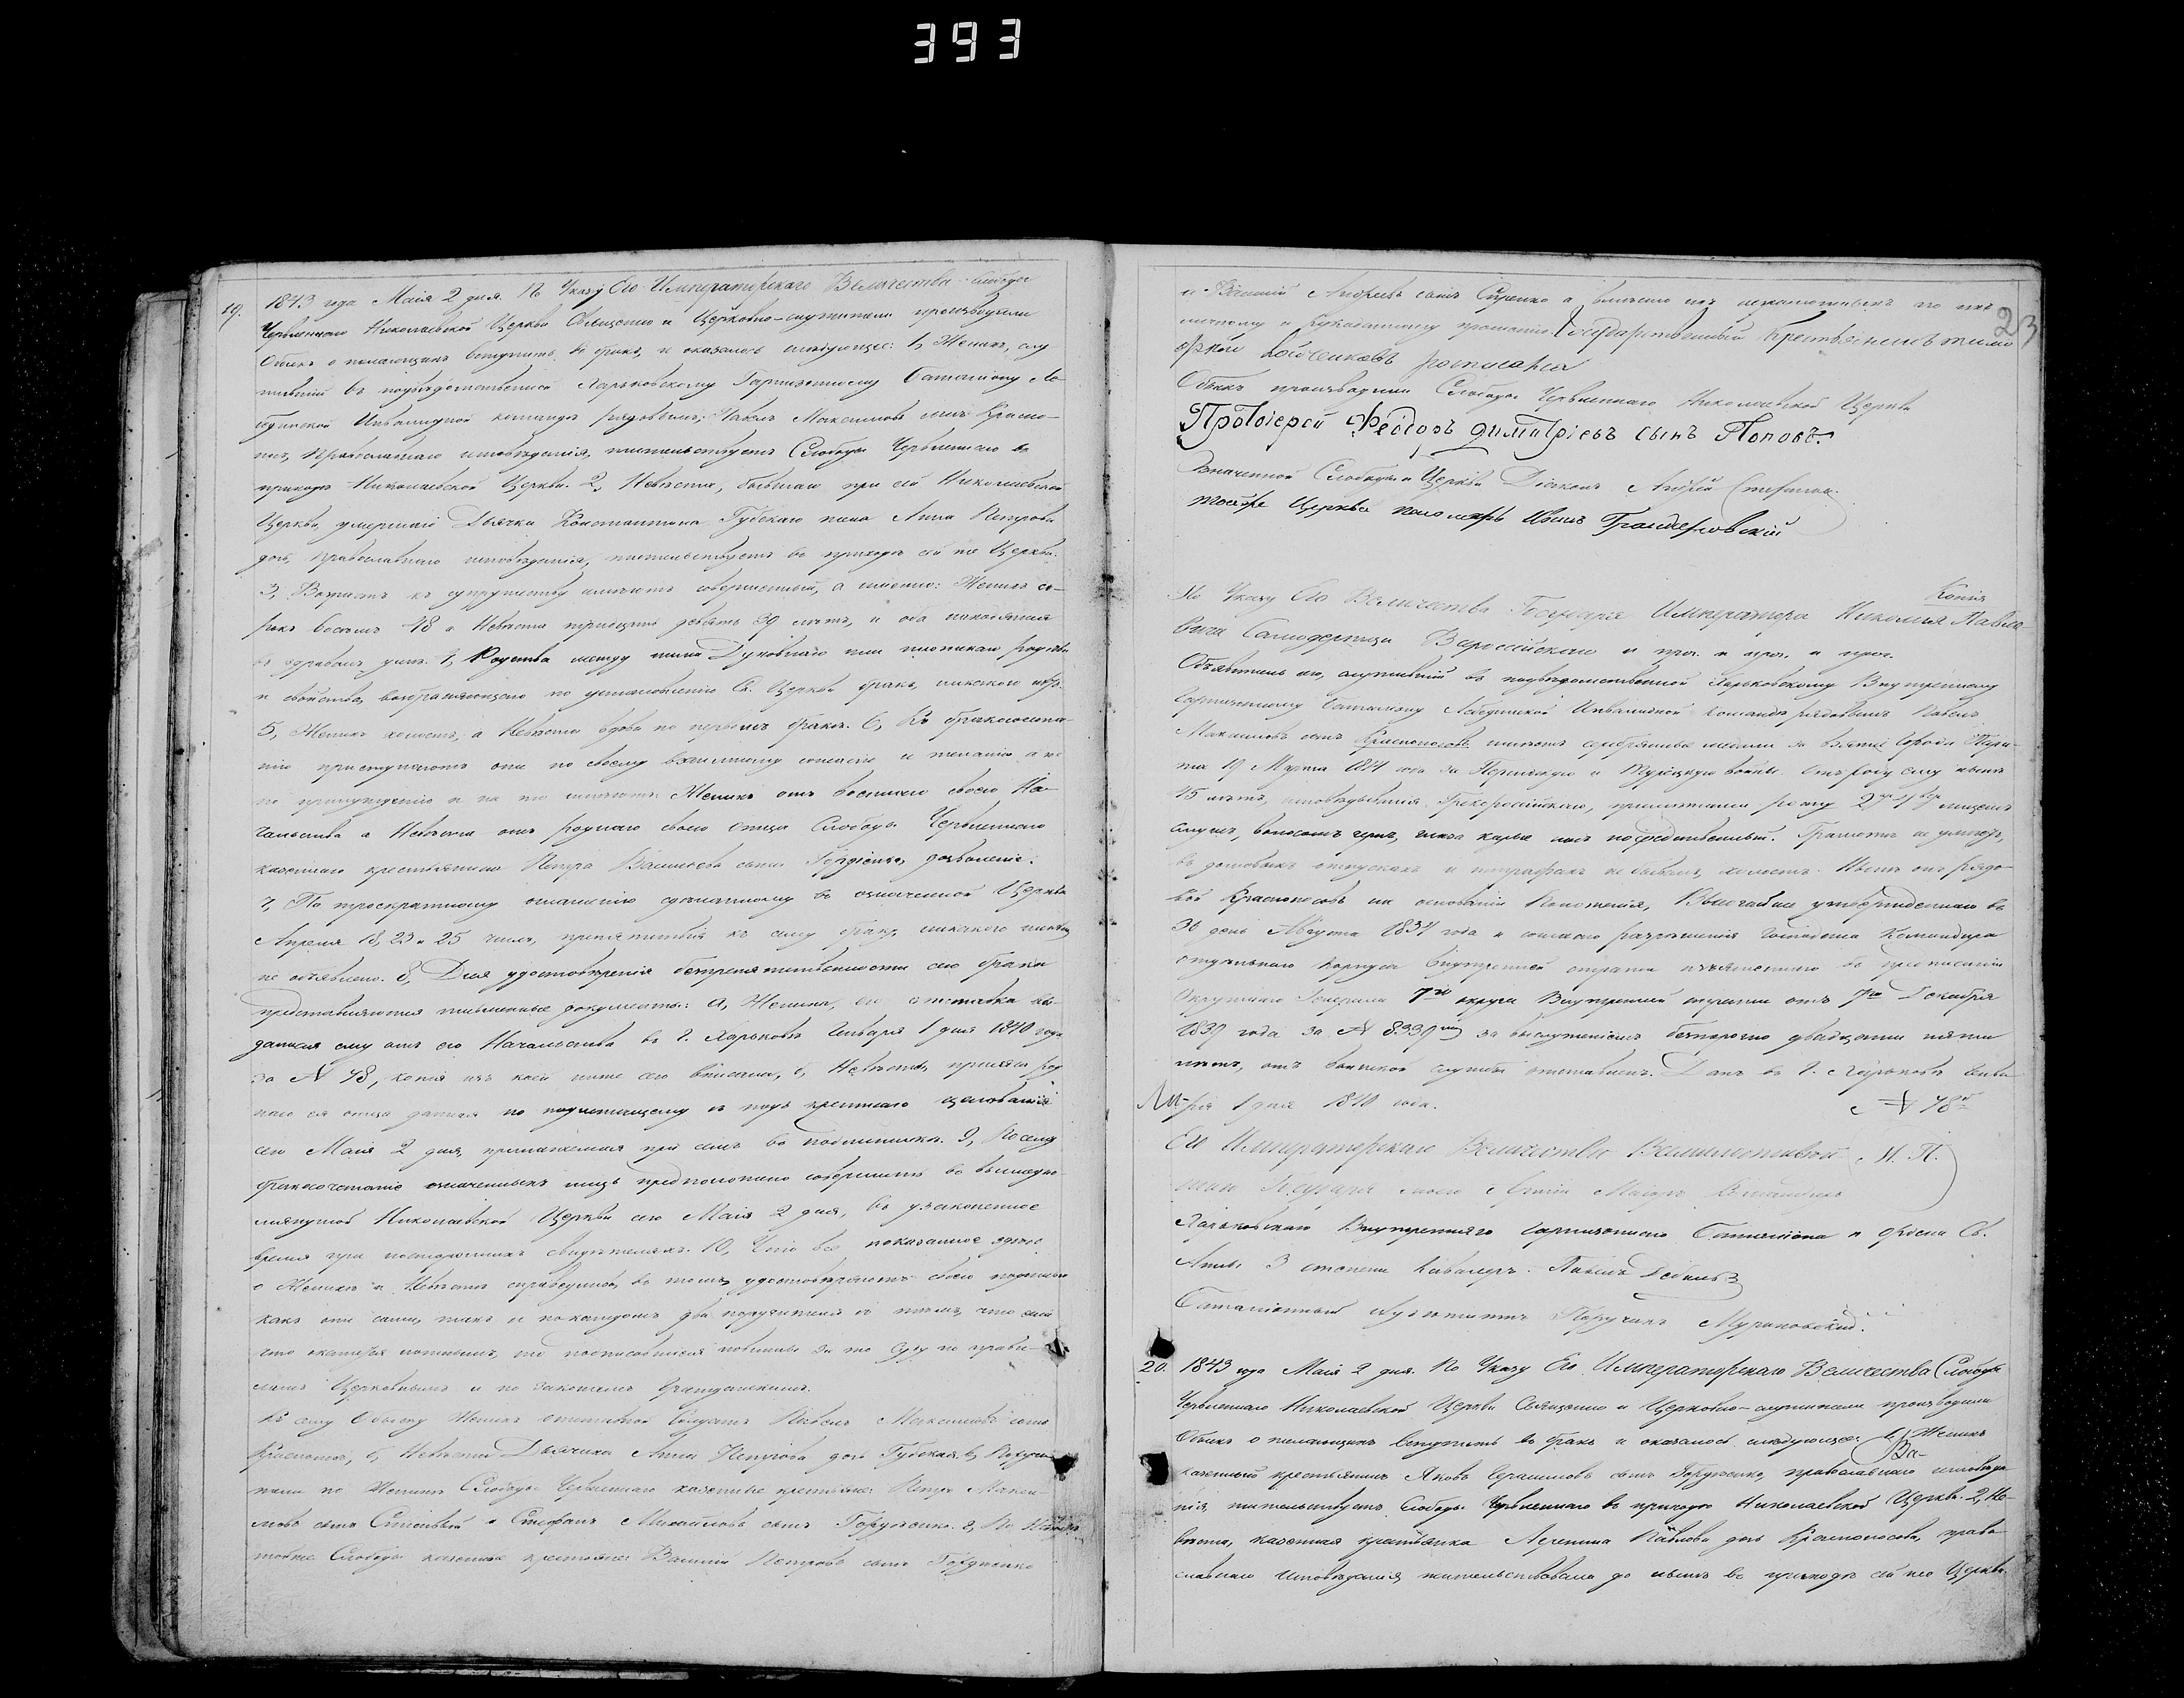 393
19. 1843 года Маія 2 дня. По Указу Его Императорскаго Величества Слободы
Червленнаго Николаевской Церкви Священно и Церковно-служители производили
Обыскъ о желающихъ вступить въ бракъ, и оказалось слѣдующее: 1, Женихъ, слу
жившій въ подвѣдомственной Харьковскому Гарнизонному Баталіону Ле-
бединской Инвалидной командѣ рядовымъ, Павелъ Максимовъ сынъ Красно-
носъ, православнаго исповѣданія, жительствуетъ Слободы Червленнаго въ
приходѣ Николаевской Церкви. 2, Невѣста, бывшаго при сей Николаевской
Церкви, умершаго Дьячка Константина Губскаго жена Анна Петрова
дочь, православнаго исповѣданія, жительствуетъ въ приходѣ сей же Церкви.
3, Возрастъ къ супружеству имѣютъ совершенный, а именно: Женихъ со-
рокъ восемь 48 а Невѣста тридцать девять 39 лѣтъ, и оба находятся
въ здравомъ умѣ. 4, Родства между ними Духовнаго или плотскаго родства
и свойства, возбраняющаго по установленію Св. Церкви бракъ, никакого нѣтъ.
5, Женихъ холостъ, а Невѣста вдова по первомъ бракѣ. 6, Къ бракосочета-
нію приступаютъ они по своему взаимному согласію и желанію, а не
по принужденію и на то имѣютъ: Женихъ отъ воинскаго своего На-
чальства а Невѣста отъ роднаго своего отца Слободы Червленнаго
казеннаго крестьянина Петра Васильева сына Гордіенка, дозволеніе.
7, По троекратному оглашенію сдѣланному въ означенной Церкви
Апрѣля 18, 23 и 25 числъ, препятствія къ сему браку никакого никѣмъ
не объявлено. 8, Для удостовѣренія безпрепятственности сего брака
представляются письменные документы: а, Жениха, его отставка вы-
данная ему отъ его Начальства въ г. Харьковѣ Генваря 1 дня 1840 года
за N 48, копія изъ коей ниже сего вписана, б, Невѣсты, присяга род
наго ея отца данная по
сего Маія 2 дня, прилагаемая при семъ въ подлинникѣ. 9, По сему
бракосочетаніе означенныхъ лицъ предположено совершить въ вышеупо-
мянутой Николаевской Церкви сего Маія 2 дня, въ узаконенное
время при постороннихъ свидѣтеляхъ. 10, Что все показанное здѣсь
о Женихѣ и Невѣстѣ справедливо, въ томъ удостовѣряютъ своею подписью
какъ они сами, такъ и по каждомъ два поручителя съ тѣмъ, что если
что окажется ложнымъ, то подписавшіеся повинны за то суду по прави-
ламъ Церковнымъ и по законамъ Гражданскимъ.
Къ сему Обыску Женихъ отставной Солдатъ Павелъ Максимовъ сынъ
Красносъ, б, Невѣста Дьячиха Анна Петрова дочь Губская. в, Поручи-
тели по Женихѣ Слободы Червленнаго казенные крестьяне: Петръ Макси-
мовъ сынъ и Стефанъ Михайловъ сынъ Гордіенко. г, По Невѣстѣ
тойже Слободы казенные крестьяне: Василій Петровъ сынъ Гордіенко
23
и Василій Андреевъ сынъ Сиренко а вмѣсто ихъ неграмотныхъ по ихъ
личному и рукоданному прошенію Государственный Крестьянинъ
росписался
Обыскъ производили Слободы Червленнаго Николаевской Церкви
Протоіерей Феодоръ Димитріевъ сынъ Поповъ
Означенной Слободы и Церкви Діаконъ Андрей
тойже Церкви пономарь Иванъ
Копія
По Указу Его Величества Государя Императора Николая Павло-
вича Самодержца Всероссійскаго и проч. и проч. и проч.
Объявитель сего, служившій въ подвѣдомственной Харьковскому Внутреннему
Гарнизонному Баталіону Лебединской Инвалидной командѣ рядовымъ Павелъ
Максимовъ сынъ Красноносовъ имѣетъ серебряные медали за взятіе города Пари-
жа 19 Марта 1814 года за Персидскую и Турецкую войны. Отъ роду ему нынѣ
45 лѣтъ, исповѣданія Грекороссійскаго, примѣтами росту 2 лицемъ
смуглъ, волосомъ черъ, глаза каріе носъ посредственный. Грамотѣ не умѣетъ,
въ домовыхъ отпускахъ и штрафахъ не бывалъ, холостъ. Нынѣ онъ рядо-
вой Красноносовъ на основаніи Положенія, Высочайше утвержденнаго въ
30 день Августа 1834 года и согласно разрѣшенія Господина Командира
отдѣльнаго Корпуса Внутренней стражи изъясненнаго въ предписаніи
Окружнаго Генерала 7го округа Внутренней стражи отъ 7го Декабря
1839 года за N 8339 за выслуженіемъ безпорочно двадцати пяти
лѣтъ, отъ воинской службы отставленъ. Данъ въ г. Харьковѣ Генва
ря 1 дня 1840 года. N 48й
Его Императорскаго Величества Всемилостивѣй- М. П.
шаго Государя моего Арміи Маіоръ Командиръ
Харьковскаго Внутренняго Гарнизоннаго Баталіона и Ордена Св.
Анны 3 степени Кавалеръ. Павелъ
Баталіонный Адъютантъ Поручикъ
20. 1843 года Маія 2 дня. По Указу Его Императорскаго Величества Слободы
Червленнаго Николаевской Церкви Священно и Церковно-служители производили
Обыскъ о желающихъ вступить въ бракъ и оказалось слѣдующее: 1, Женихъ
казенный крестьянинъ Яковъ Герасимовъ сынъ Гордіенко, православнаго исповѣда
нія, жительствуетъ Слободы Червленнаго въ приходѣ Николаевской Церкви. 2, Не-
вѣста, казенная крестьянка Павлова дочь Красноносова, право
славнаго Исповѣданія, жительствовала до нынѣ въ приходѣ сей же Церкви.